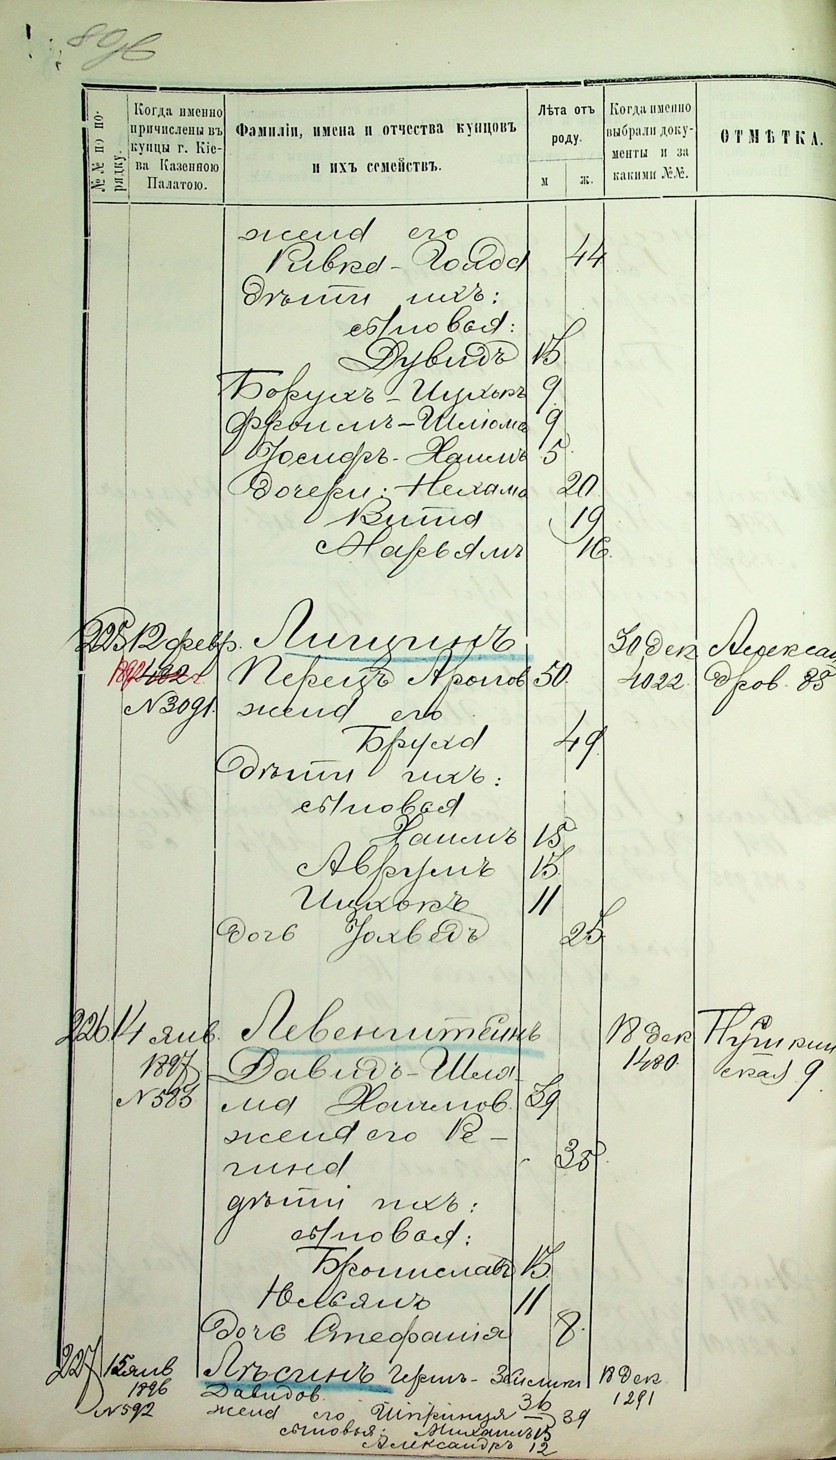 №№ по по-
рядку.
Когда именно
причислены въ
купцы г. Кіе-
ва Казенною
Палатою.
Фамиліи, имена и отчества купцовъ
и ихъ семействъ.
Лѣта отъ
роду.
м
ж.
Когда именно
выбрали доку-
менты и за
какими №№.
ОТМѢТКА.
жена его
Ривка-Голда 44
дѣти ихъ:
сыновья:
Дувидъ 15
Борухъ-Ицхокъ 9
Фроимъ-Шлюма 9
Іосифъ-Хаимъ 5
Дочери: Нехама 20
Витта 19
Марьямъ 16.
225 12 февр. Лищинъ 30 дек Алексан
1892 Перецъ Аронов 50. 4022. дров. 85
№3091. жена его
Бруха 49
Дѣти ихъ:
сыновья
Хаимъ 15
Аврумъ 13
Ицхокъ 11
дочь Іохведъ 25
226 14 янв. Левенштейнъ 18 дек Пушкин
1897 Давидъ-Шлë- 1480. ская 9
№583 ма Хаимов. 39
жена его Ре-
гина 35
дѣти ихъ:
сыновья:
Брониславъ 13
Юльянъ 11
Дочь Стефанія 8.
227 15 янв Лѣсинъ Герш- 18 дек
1896 Давидов. 36 1291
№592 жена его Шпринця 39
сыновья: Михаилъ 15
Александръ 12